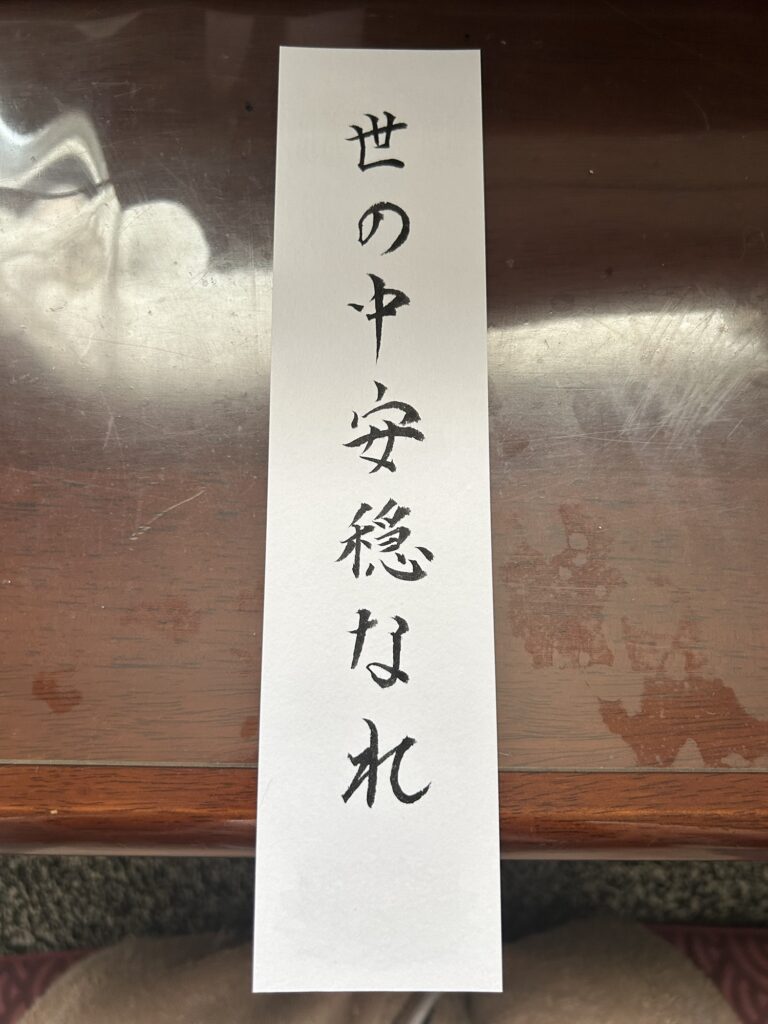 世の中安穏なれ